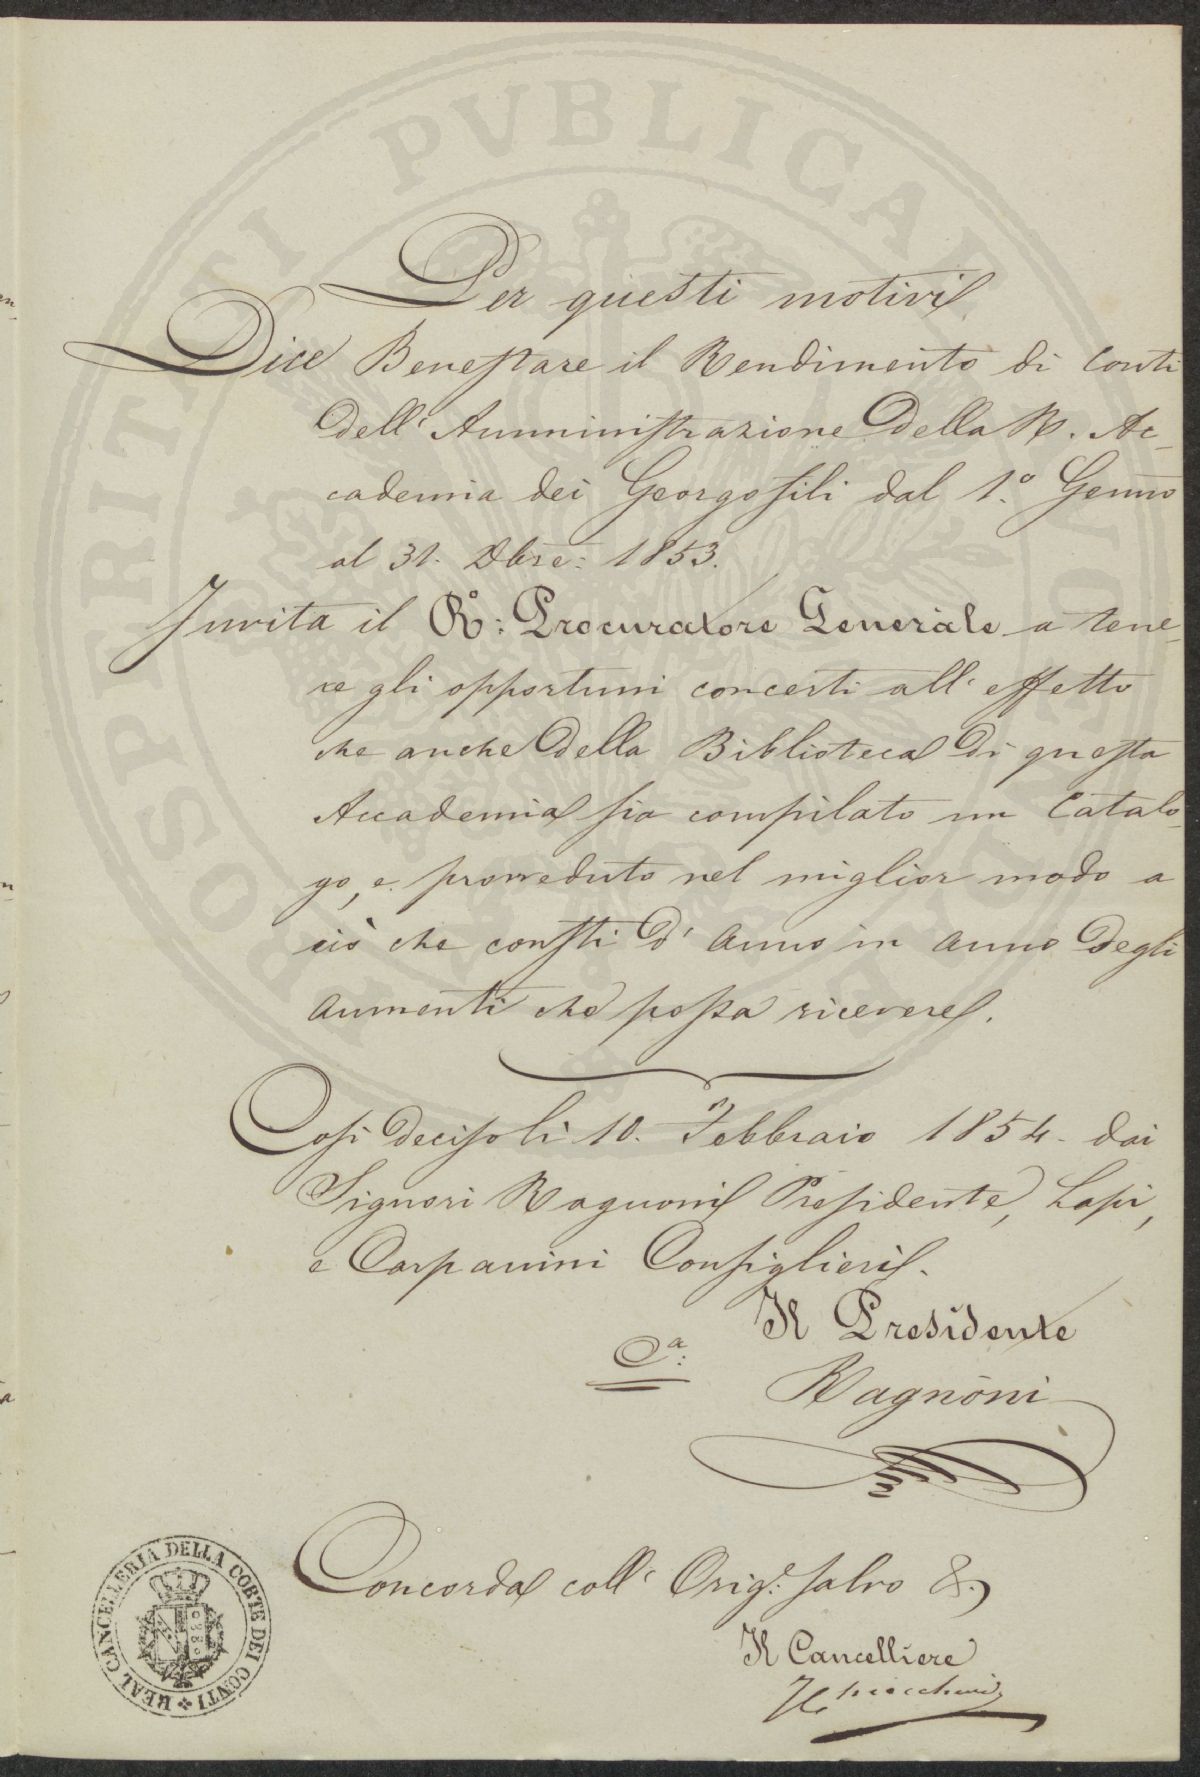 PROSPERITATI PUBLICAE
Per questi motivi
Dice Benestare il Rendimento di Conti
dell'Amministrazione della R. Ac-
cademia dei Georgofili dal 1.° Genn̄o
al 31. Xbre: 1853.
Invita il R°: Procuratore Generale a tene-
re gli opportuni concerti all'effetto
che anche della Biblioteca di questa
Accademia sia compilato un Catalo-
go, e provveduto nel miglior modo a
ciò che consti d'anno in anno degli
aumenti che possa ricevere.
Così deciso li 10. Febbraio 1854. dai
Signori Ragnoni Presidente, Lapi,
e Carpanini Consiglieri.
Il Presidente
Ca:
Ragnoni
Concorda coll'Orig.e: salvo &.
Il Cancelliere
REAL CANCELLERIA DELLA CORTE DEI CONTI